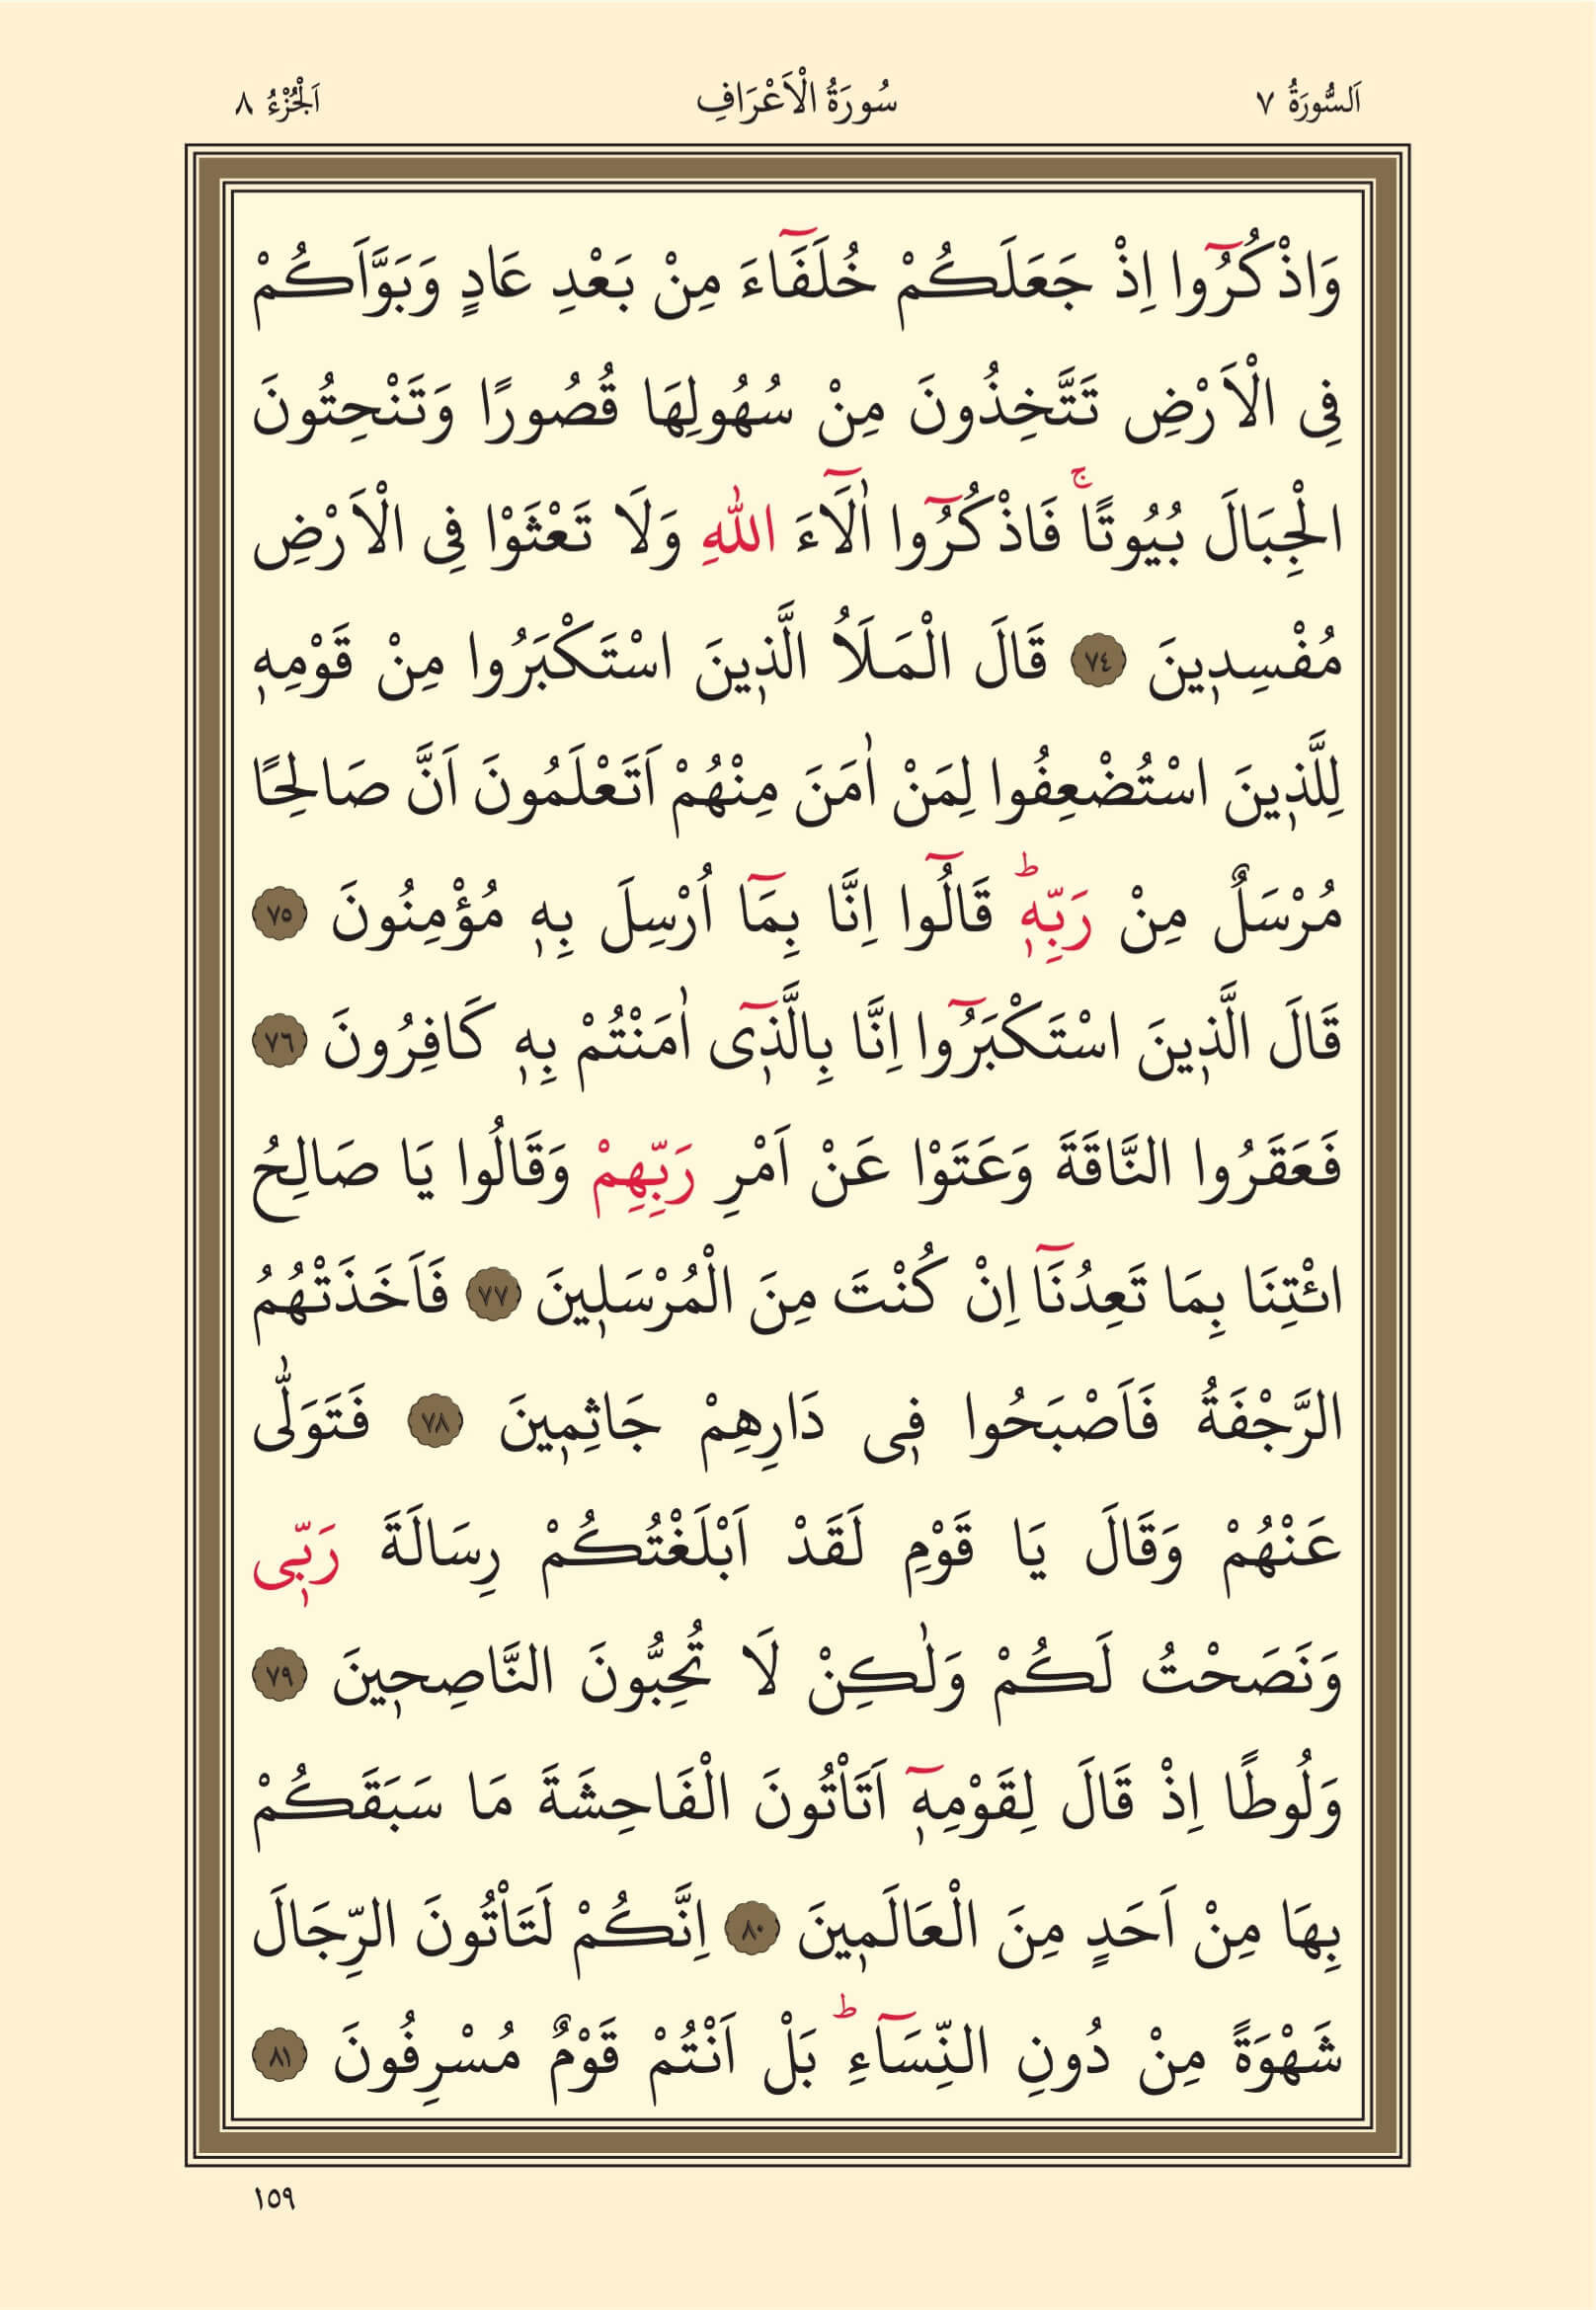 اَلسُّورَةُ ٧ سُورَةُ الْاَعْرَافِ اَلْجُزْءُ ٨
وَاذْكُرُٓوا اِذْ جَعَلَكُمْ خُلَفَٓاءَ مِنْ بَعْدِ عَادٍ وَبَوَّاَكُمْ
فِى الْاَرْضِ تَتَّخِذُونَ مِنْ سُهُولِهَا قُصُورًا وَتَنْحِتُونَ
الْجِبَالَ بُيُوتًاۚ فَاذْكُرُٓوا اٰلَٓاءَ اللّٰهِ وَلَا تَعْثَوْا فِى الْاَرْضِ
مُفْسِد۪ينَ ٧٤ قَالَ الْمَلَاُ الَّذ۪ينَ اسْتَكْبَرُوا مِنْ قَوْمِه۪
لِلَّذ۪ينَ اسْتُضْعِفُوا لِمَنْ اٰمَنَ مِنْهُمْ اَتَعْلَمُونَ اَنَّ صَالِحًا
مُرْسَلٌ مِنْ رَبِّه۪ۜ قَالُٓوا اِنَّا بِمَٓا اُرْسِلَ بِه۪ مُؤْمِنُونَ ٧٥
قَالَ الَّذ۪ينَ اسْتَكْبَرُٓوا اِنَّا بِالَّذ۪ٓى اٰمَنْتُمْ بِه۪ كَافِرُونَ ٧٦
فَعَقَرُوا النَّاقَةَ وَعَتَوْا عَنْ اَمْرِ رَبِّهِمْ وَقَالُوا يَا صَالِحُ
ائْتِنَا بِمَا تَعِدُنَٓا اِنْ كُنْتَ مِنَ الْمُرْسَل۪ينَ ٧٧ فَاَخَذَتْهُمُ
الرَّجْفَةُ فَاَصْبَحُوا ف۪ى دَارِهِمْ جَاثِم۪ينَ ٧٨ فَتَوَلّٰى
عَنْهُمْ وَقَالَ يَا قَوْمِ لَقَدْ اَبْلَغْتُكُمْ رِسَالَةَ رَبّ۪ى
وَنَصَحْتُ لَكُمْ وَلٰكِنْ لَا تُحِبُّونَ النَّاصِح۪ينَ ٧٩
وَلُوطًا اِذْ قَالَ لِقَوْمِه۪ٓ اَتَاْتُونَ الْفَاحِشَةَ مَا سَبَقَكُمْ
بِهَا مِنْ اَحَدٍ مِنَ الْعَالَم۪ينَ ٨٠ اِنَّكُمْ لَتَاْتُونَ الرِّجَالَ
شَهْوَةً مِنْ دُونِ النِّسَٓاءِۜ بَلْ اَنْتُمْ قَوْمٌ مُسْرِفُونَ ٨١
١٥٩